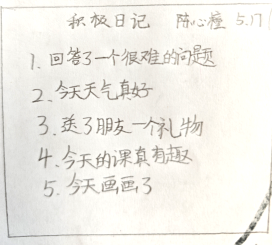 积极日记 陈心蕴 5.17
1. 回答了一个很难的问题
2. 今天天气真好
3. 送了朋友一个礼物
4. 今天的课真有趣
5. 今天画画了